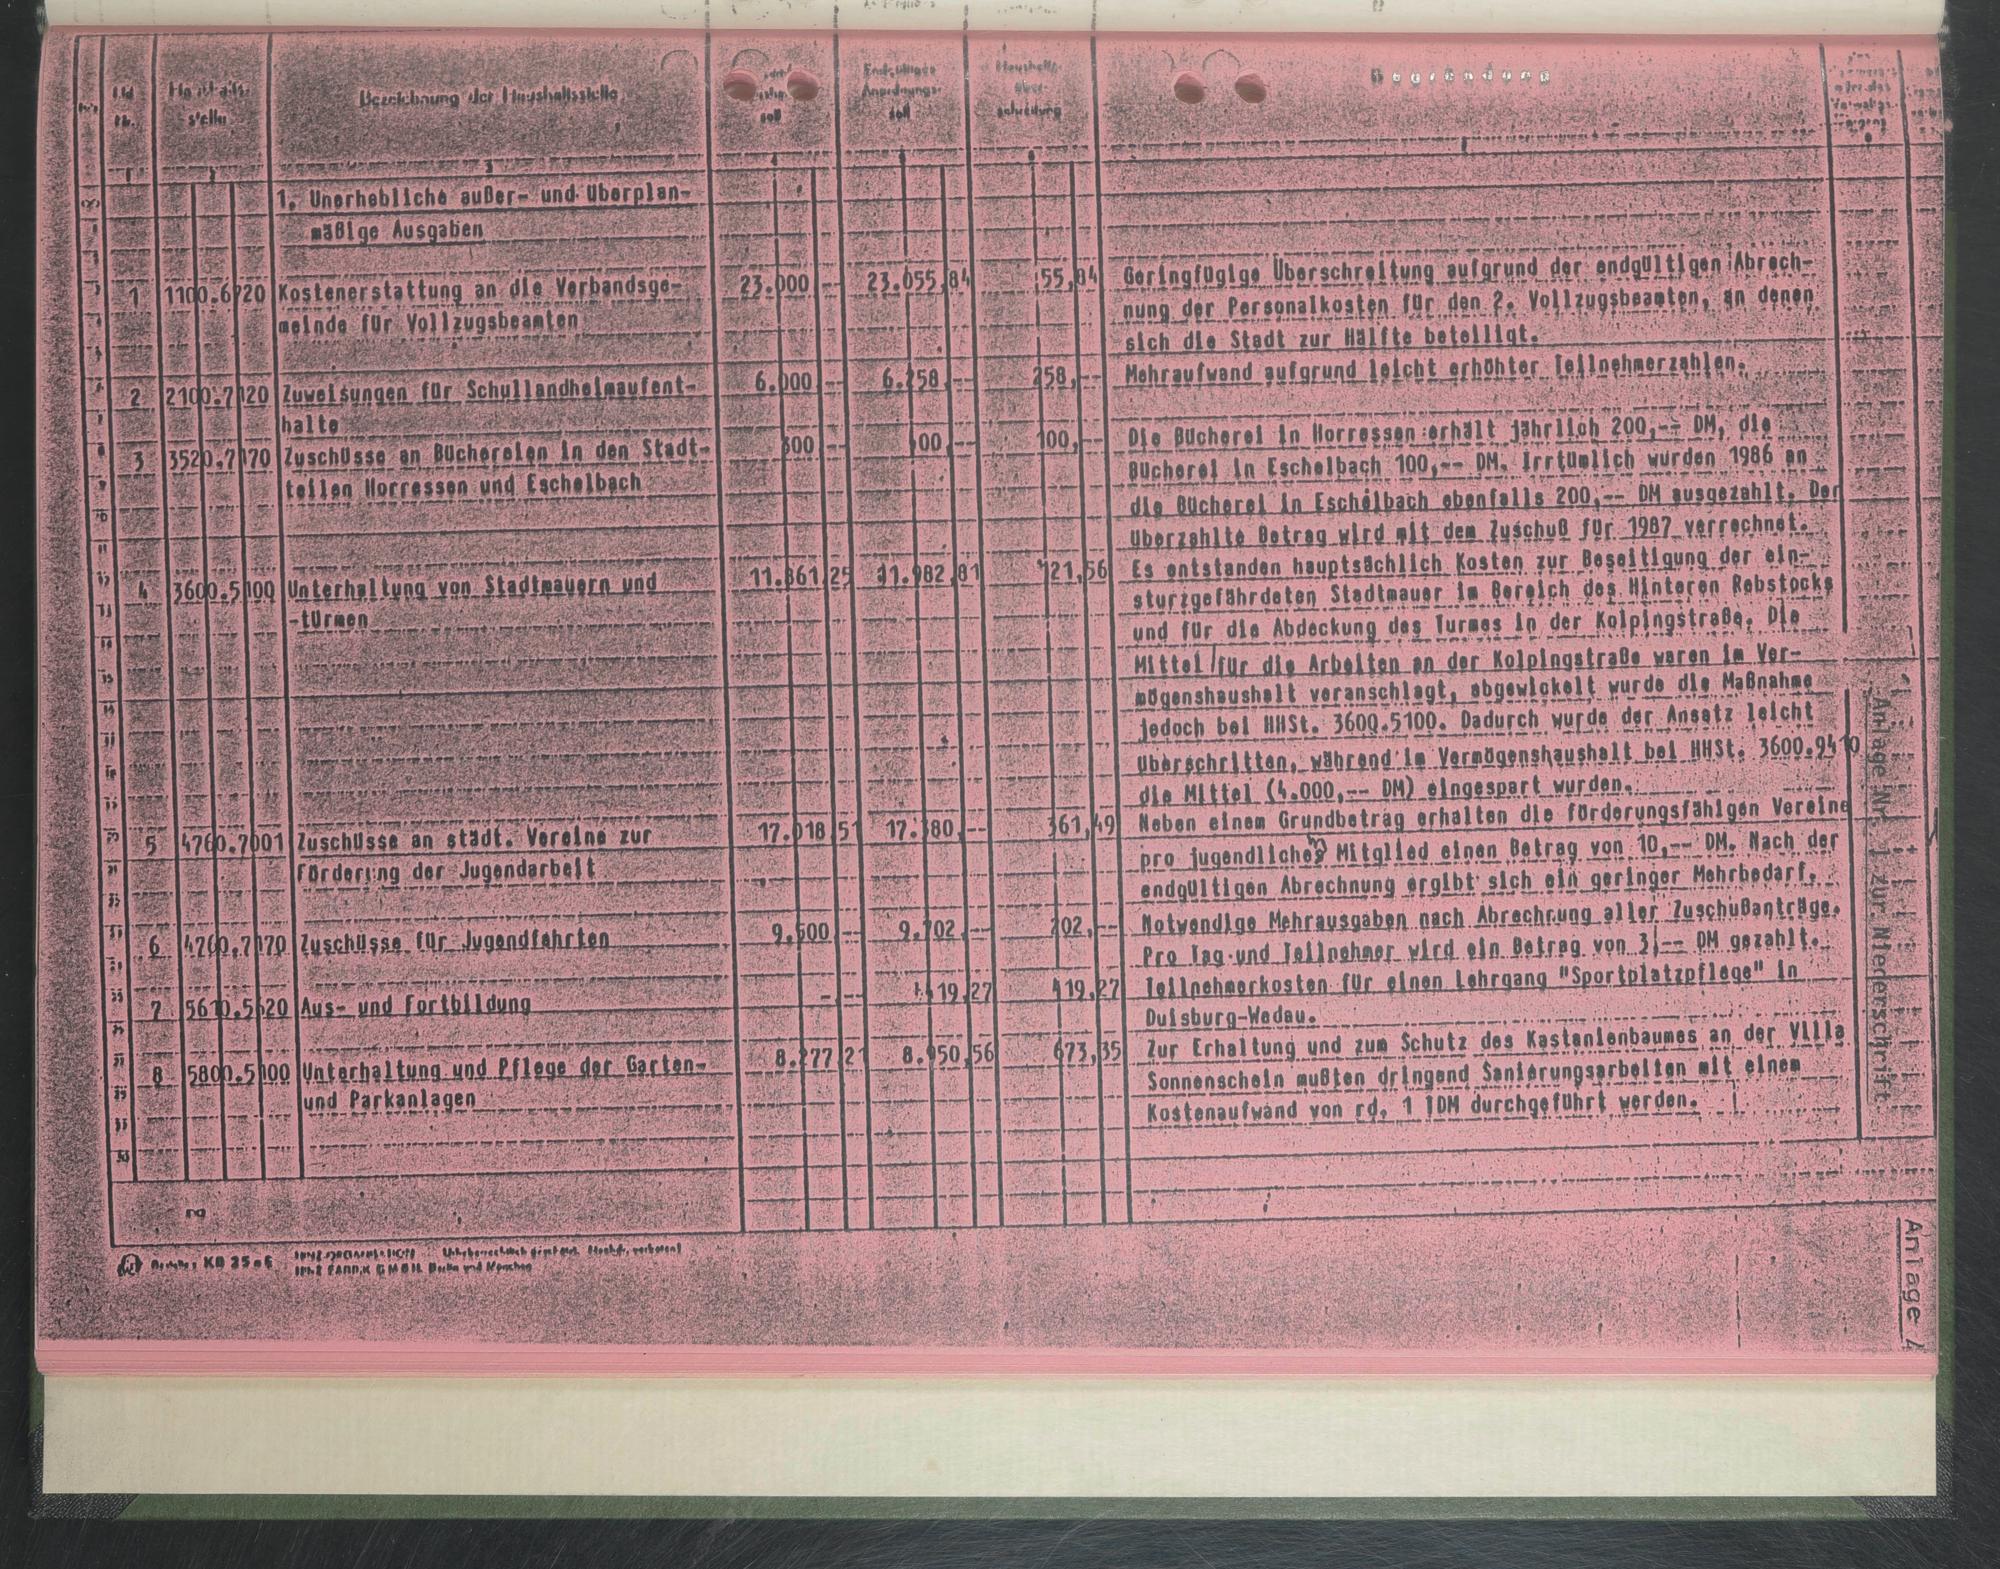 Lfd. Nr.
Haushaltsstelle
Bezeichnung der Haushaltsstelle
soll
Endgültiges
Anordnungs-
soll
Haushalts-
über-
schreitung
Begründung
1. Unerhebliche außer- und überplan-
mäßige Ausgaben
1 1100.6720 Kostenerstattung an die Verbandsge- 23.000 -- 23.055,84 55,84 Geringfügige Überschreitung aufgrund der endgültigen Abrech-
meinde für Vollzugsbeamten nung der Personalkosten für den 2. Vollzugsbeamten, an denen
sich die Stadt zur Hälfte beteiligt.
2 2100.7120 Zuweisungen für Schullandheimaufent- 6.000 -- 6.258,-- 258,-- Mehraufwand aufgrund leicht erhöhter Teilnehmerzahlen.
halte
3 3520.7170 Zuschüsse an Büchereien in den Stadt- 300 -- 400,-- 100,-- Die Bücherei in Horressen erhält jährlich 200,-- DM, die
teilen Horressen und Eschelbach Bücherei in Eschelbach 100,-- DM. Irrtümlich wurden 1986 an
die Bücherei in Eschelbach ebenfalls 200,-- DM ausgezahlt. Der
überzahlte Betrag wird mit dem Zuschuß für 1987 verrechnet.
4 3600.5100 Unterhaltung von Stadtmauern und 11.861,25 11.982,81 121,56 Es entstanden hauptsächlich Kosten zur Beseitigung der ein-
-türmen sturzgefährdeten Stadtmauer im Bereich des Hinteren Rebstocks
und für die Abdeckung des Turmes in der Kolpingstraße. Die
Mittel für die Arbeiten an der Kolpingstraße waren im Ver-
mögenshaushalt veranschlagt, abgewickelt wurde die Maßnahme
jedoch bei HHSt. 3600.5100. Dadurch wurde der Ansatz leicht
überschritten, während im Vermögenshaushalt bei HHSt. 3600.9410
die Mittel (4.000,-- DM) eingespart wurden.
5 4760.7001 Zuschüsse an städt. Vereine zur 17.018,51 17.380,-- 361,49 Neben einem Grundbetrag erhalten die förderungsfähigen Vereine
Förderung der Jugendarbeit pro jugendliches Mitglied einen Betrag von 10,-- DM. Nach der
endgültigen Abrechnung ergibt sich ein geringer Mehrbedarf.
6 4760.7170 Zuschüsse für Jugendfahrten 9.500 -- 9.702,-- 202,-- Notwendige Mehrausgaben nach Abrechnung aller Zuschußanträge.
Pro Tag und Teilnehmer wird ein Betrag von 3,-- DM gezahlt.
7 5610.5620 Aus- und Fortbildung - -- 419,27 419,27 Teilnehmerkosten für einen Lehrgang "Sportplatzpflege" in
Duisburg-Wedau.
8 5800.5100 Unterhaltung und Pflege der Garten- 8.277,21 8.950,56 673,35 Zur Erhaltung und zum Schutz des Kastanienbaumes an der Villa
und Parkanlagen Sonnenschein mußten dringend Sanierungsarbeiten mit einem
Kostenaufwand von rd. 1 TDM durchgeführt werden.
Anlage Nr. 1 zur Niederschrift
Anlage
KD 25